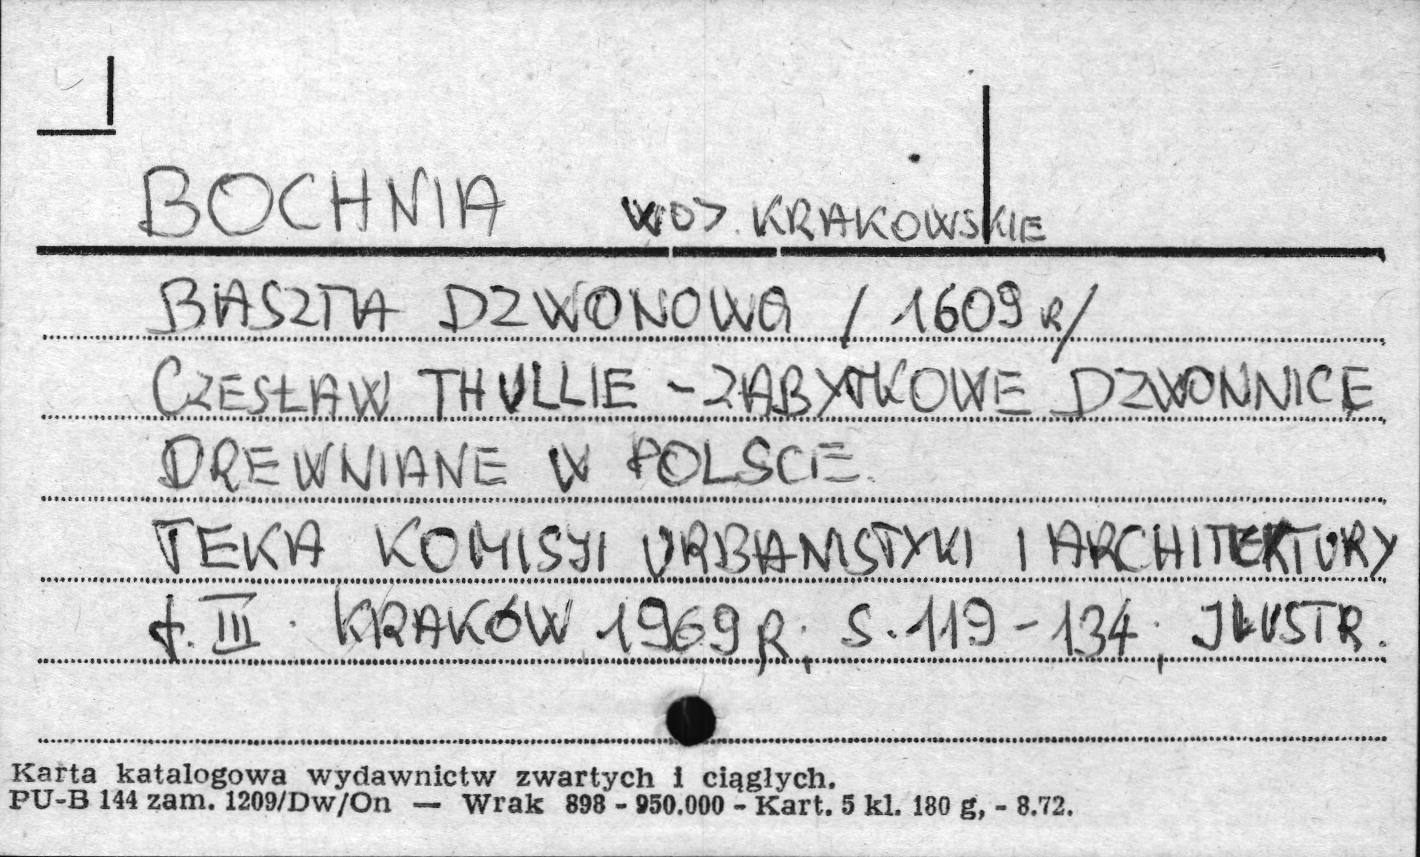 BOCHNIA WOJ. KRAKOWSKIE
BASZTA DZWONOWA / 1609 R/
CZESŁAW THULLIE - ZABYTKOWE DZWONNICE
DREWNIANE W POLSCE.
TEKA KOMISJI URBANISTYKI I ARCHITEKTURY
t. III. KRAKÓW 1969 R; S. 119-134, ILUSTR.
Karta katalogowa wydawnictw zwartych i ciągłych.
PU-B 144 zam. 1209/Dw/On — Wrak 898 - 950.000 - Kart. 5 kl. 180 g, - 8.72.